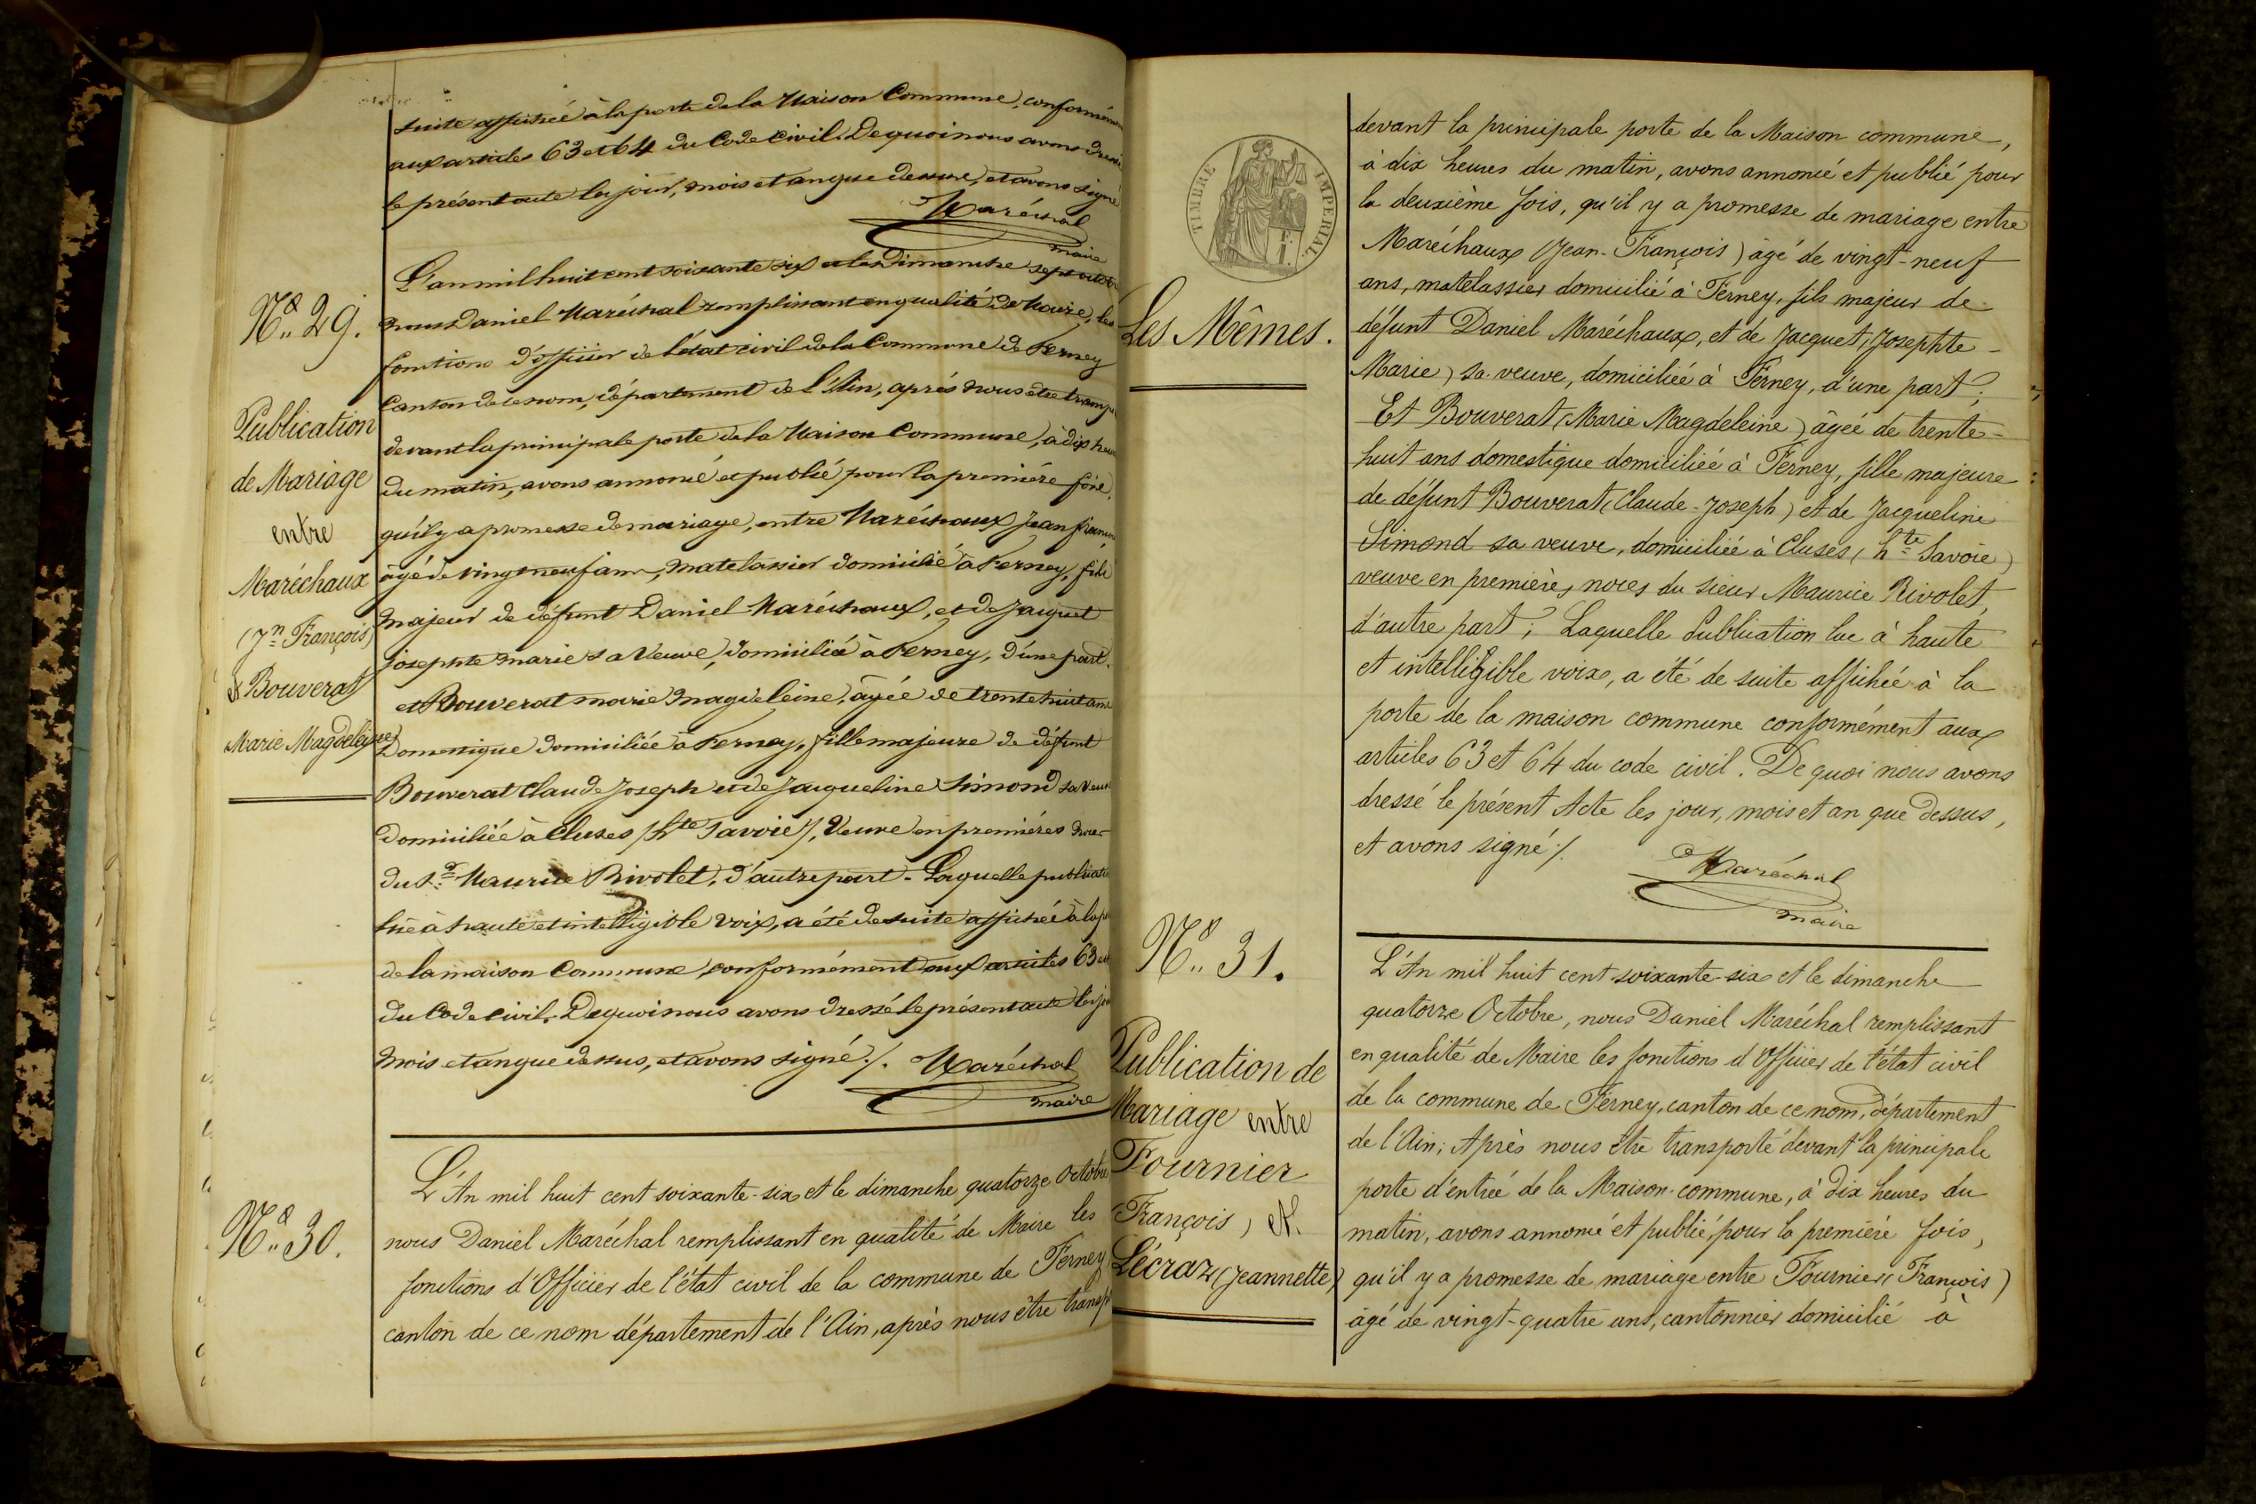 suite affichée à la porte de la Maison Commune, conformément
aux articles 63 et 64 du Code civil. De quoi nous avons dressé
le présent acte les jour, mois et an que dessus, et avons signé
Maréchal
maire
N° 29.
Publication
de Mariage
entre
Maréchaux
(Jn François)
& Bouverat
Marie Magdeleine
L'an mil huit cent soixante six et le Dimanche sept octobre
nous Daniel Maréchal remplissant en qualité de Maire, les
fonctions d'officier de l'état civil de la Commune de Ferney
Canton de ce nom, département de l'Ain, après nous être transp
devant la principale porte de la Maison Commune, à dix heu
du matin, avons annoncé et publié pour la première fois,
qu'il y a promesse de mariage, entre Maréchaux Jean françois
âgé de vingt neuf ans, matelassier domicilié à Ferney, fils
majeur de défunt Daniel Maréchaux, et de Jacquet
josephte marie sa Veuve, domiciliée à Ferney, d'une part.
et Bouverat marie magdeleine, âgée de trente huit ans
Domestique domiciliée à Ferney, fille majeure de défunt
Bouverat Claude Joseph et de Jacqueline Simond sa Veuve
domiciliée à Cluses (hte Savoie), Veuve en premières noces
du Sr Maurice Rivolet, d'autre part. Laquelle publication
lue à haute et intelligible voix, a été de suite affichée à la p
de la maison Commune, conformément aux articles 63 et
du Code civil. De quoi nous avons dressé le présent acte les jo
mois et an que dessus, et avons signé ./. Maréchal
maire
N° 30.
L'An mil huit cent soixante-six et le dimanche quatorze Octobre
nous Daniel Maréchal remplissant en qualité de Maire les
fonctions d'Officier de l'état civil de la commune de Ferney
canton de ce nom département de l'Ain, après nous être transp
TIMBRE IMPERIAL
Les Mêmes.
devant la principale porte de la Maison commune,
à dix heures du matin, avons annoncé et publié pour
la deuxième fois, qu'il y a promesse de mariage entre
Maréchaux (Jean-François) âgé de vingt-neuf
ans, matelassier domicilié à Ferney, fils majeur de
défunt Daniel Maréchaux, et de Jacquet (Josephte-
Marie) sa veuve, domiciliée à Ferney, d'une part;
Et Bouverat (Marie Magdeleine) âgée de trente-
huit ans domestique domiciliée à Ferney, fille majeure
de défunt Bouverat (Claude-Joseph) et de Jacqueline
Simond sa veuve, domiciliée à Cluses (hte Savoie)
veuve en premières noces du sieur Maurice Rivolet,
d'autre part; Laquelle Publication lue à haute
et intelligible voix, a été de suite affichée à la
porte de la maison commune conformément aux
articles 63 et 64 du code civil. De quoi nous avons
dressé le présent Acte les jour, mois et an que dessus,
et avons signé ./.
Maréchal
maire
N° 31.
Publication de
Mariage entre
Fournier
(François) et
Lécraz (Jeannette)
L'An mil huit cent soixante-six et le dimanche
quatorze Octobre, nous Daniel Maréchal remplissant
en qualité de Maire les fonctions d'Officier de l'état civil
de la commune de Ferney, canton de ce nom, département
de l'Ain; Après nous être transporté devant la principale
porte d'entrée de la Maison-commune, à dix heures du
matin, avons annoncé et publié, pour la première fois,
qu'il y a promesse de mariage entre Fournier (François)
âgé de vingt-quatre ans, cantonnier domicilié à